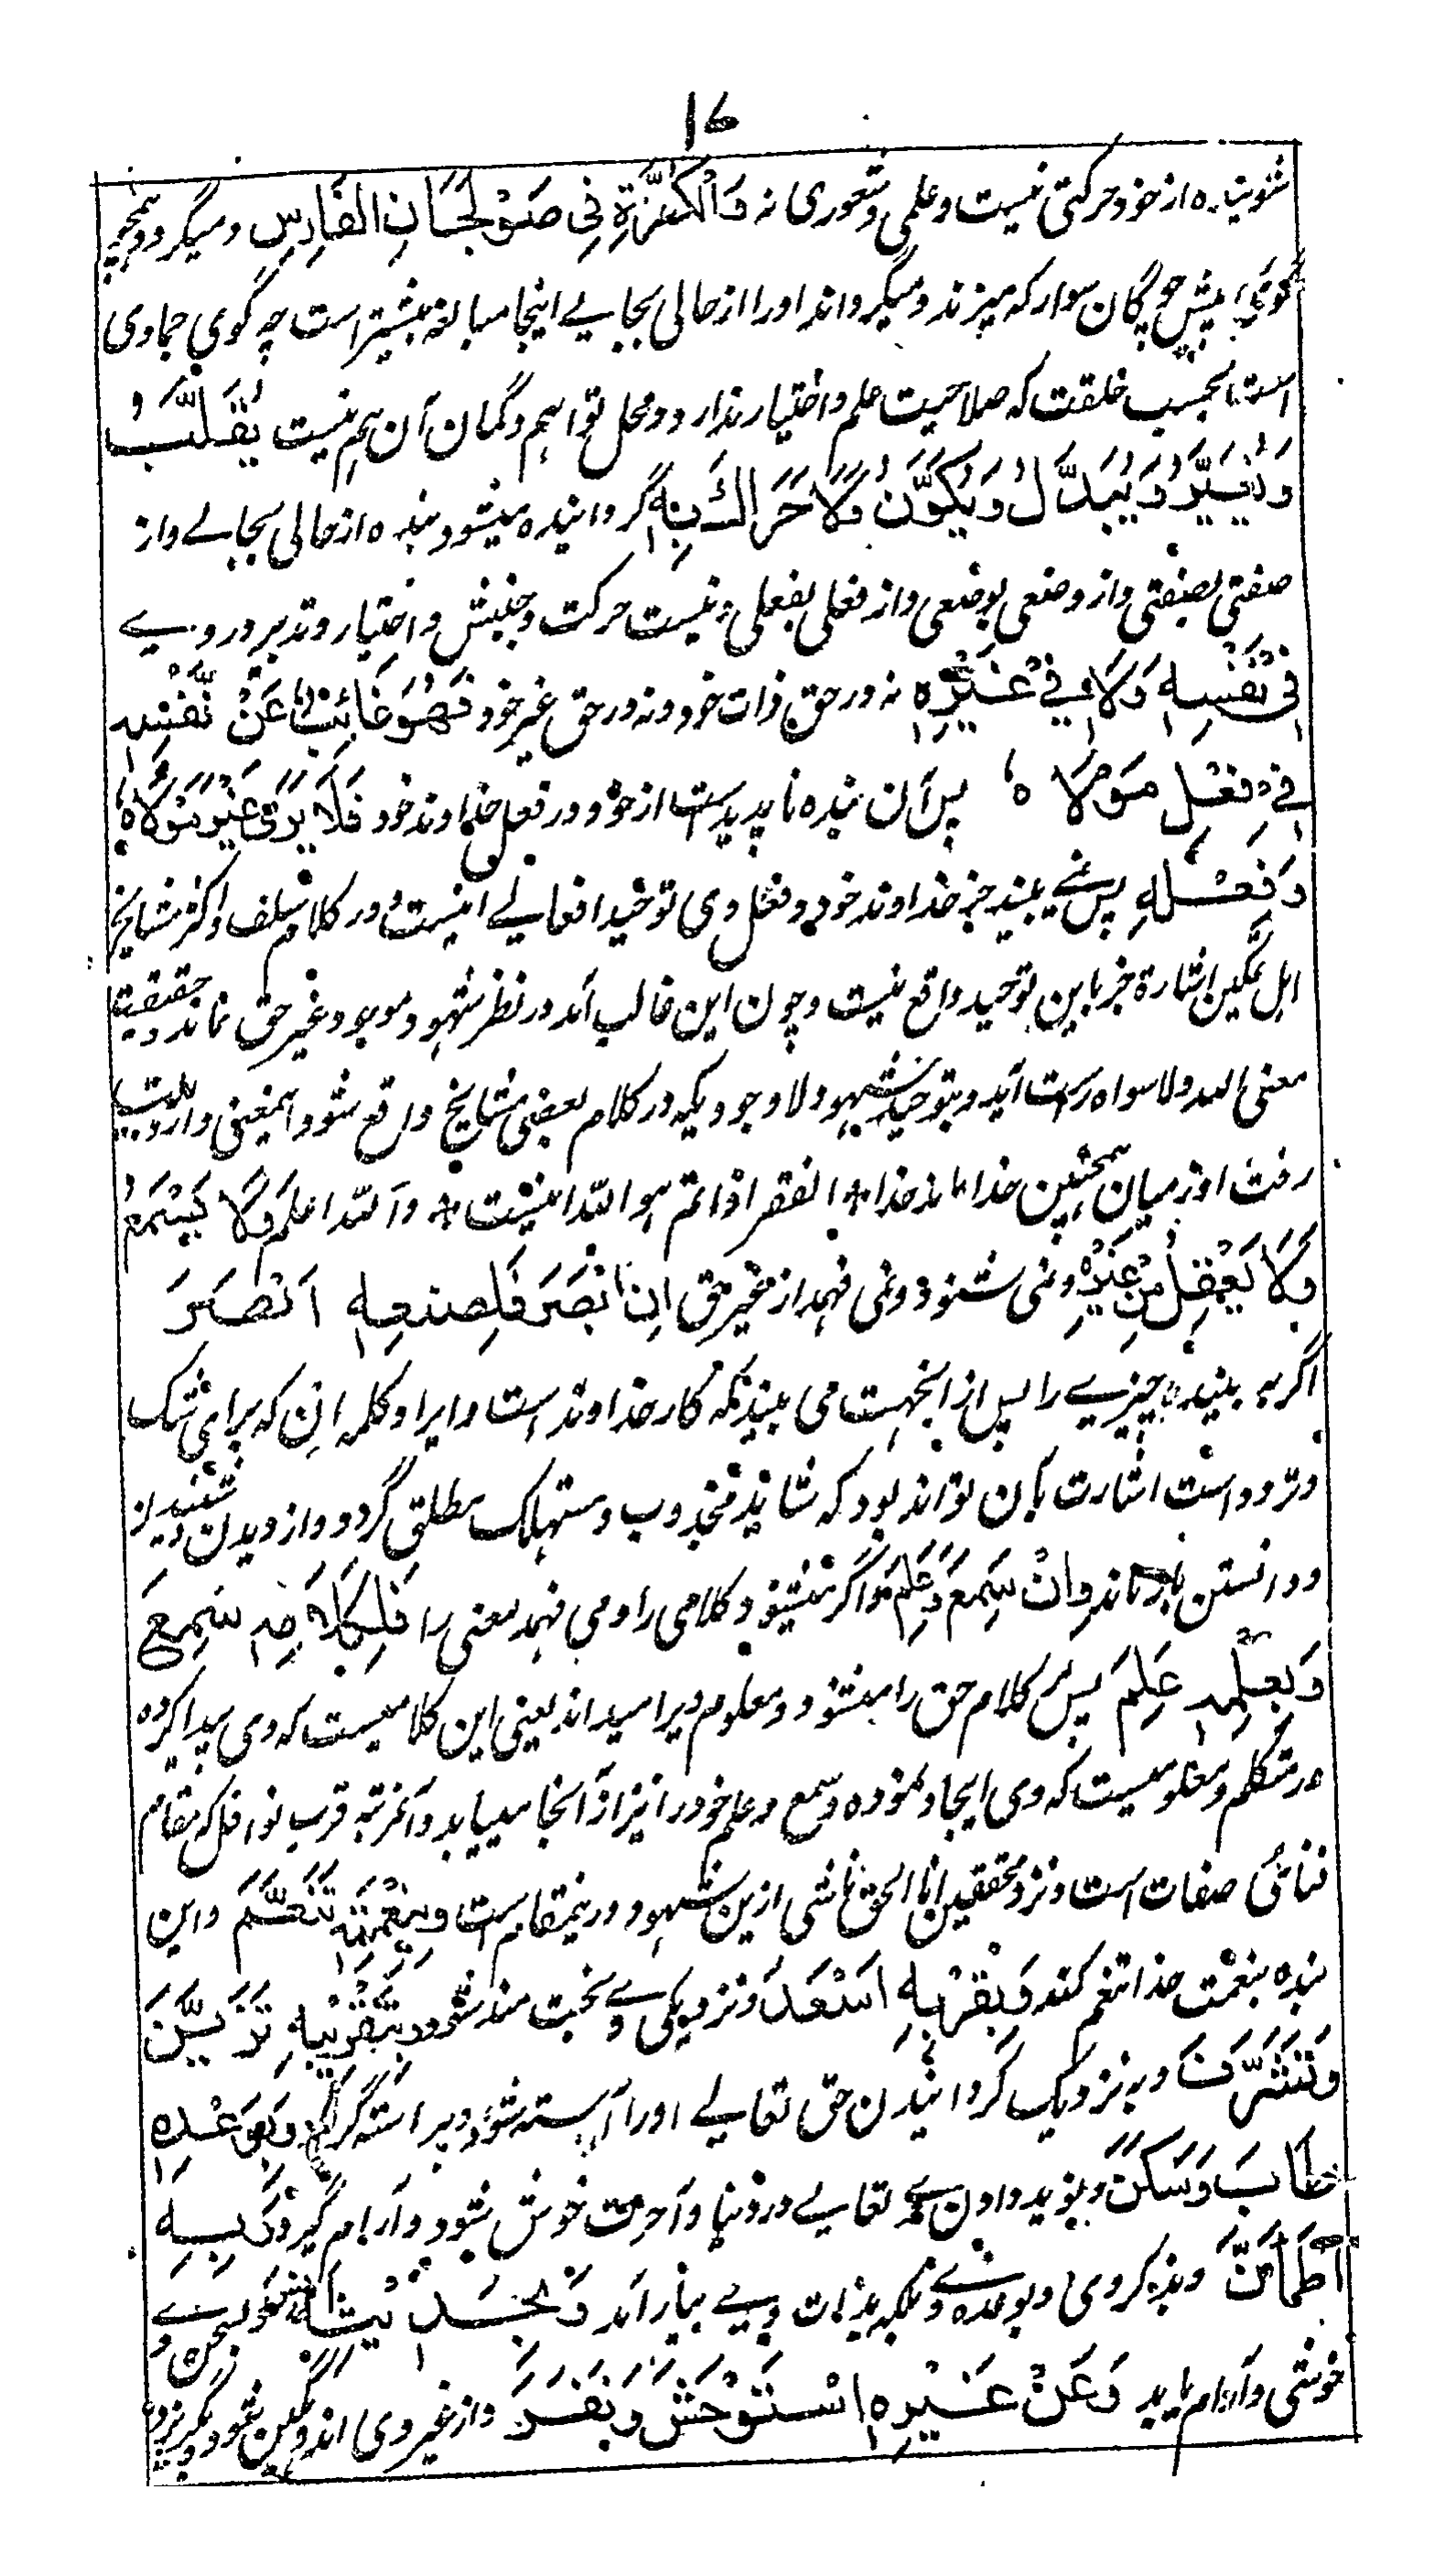 ۱۷
شوینده از خود حرکتی نیست و علمی و شعوری نه وَالْکُرَّةِ فِی صَوْلَجَانِ الْفَارِسِ و میگردد همچو
گوی پیش چوگان سوار که میزند و میگرداند او را از حالی بحالے اینجا مبالغه بیشتر است چه گوی جمادی
است بحسب خلقت که صلاحیت علم و اختیار ندارد و محل توهم و گمان آن هم نیست یُقَلَّبُ
وَیُغَیَّرُ وَیُبَدَّلُ وَیُکَوَّنُ وَلَا حَرَاكَ بِهِ گردانیده میشود بنده از حالی بحالے و از
صفتی بصفتی و از وضعی بوضعی و از فعلی بفعلی و نیست حرکت و جنبش و اختیار و تدبیر در وے
فِی نَفْسِهِ وَلَا فِی غَیْرِهِ نه در حق ذات خود و نه در حق غیر خود فَهُوَ غَائِبٌ عَنْ نَفْسِهِ
فِی فِعْلِ مَوْلَاهُ پس آن بنده ناپدید است از خود در فعل خداوند خود فَلَا یَرٰی غَیْرَ مَوْلَاهُ
وَفِعْلِهِ پس نمے بیند جز خداوند خود و فعل وی توحید افعالے اینست و در کلام سلف و اکثر مشایخ
اهل تمکین اشارة جز باین توحید واقع نیست و چون این غالب آمد در نظر شهود موجود غیر حق نماند و حقیقت
معنی الله ولا سواه راست آید و توحید شهود و لا وجودیکه در کلام بعضی مشایخ واقع شود اینمعنی دارد بیت
رفت او ز میان همچنین خدا ماند خدا * الفقر اذا تم هو الله اینست * والله اعلم وَلَا یَسْمَعُ
وَلَا یَعْقِلُ مِنْ غَیْرِهِ و نمی شنود و نمی فهمد از غیر حق اِنْ اَبْصَرَ فَلِصُنْعِهِ اَبْصَرَ
اگر به بیند چیزیے را پس از انجهت می بیند که کار خداوند است و ایراد کلمه اِن که برای شک
و تردد است اشارت بآن تواند بود که شاید مجذوب و مستهلک مطلق گردد و از دیدن و شنیدن
و دانستن باز ماند وَاِنْ سَمِعَ وَعَلِمَ و اگر بشنود کلامی را و می فهمد معنی را فَلِکَلَامِهِ سَمِعَ
وَبِعِلْمِهِ عَلِمَ پس کلام حق را میشنود و معلوم ویرا میداند یعنی این کلامیست که وی پیدا کرده
در متکلم و معلومیست که وی ایجاد نموده و سمع و علم خود را نیز از آنجا مییابد و آنمرتبه قرب نوافل که مقام
فنائی صفات است و نزد محققین انا الحق ناشی ازین شهود و درینمقام است وَبِنِعْمَتِهِ تَنَعَّمَ و این
بنده بنعمت خدا تنعم کند وَبِقُرْبِهِ اَسْعَدَ و نزدیکی وے بخت مند شود وَبِتَقْرِیبِهِ تَزَیَّنَ
وَتَشَرَّفَ و به نزدیک گردانیدن حق تعالے او را آراسته شود و پیراسته گردد وَبِوَعْدِهِ
طَابَ وَسَکَنَ و بنوید دادن حق تعالے در دنیا و آخرت خوش شود و آرام گیرد وَبِهِ
اطْمَأَنَّ و بذکر وی و بوعده وے و بلکه بذات وے بیارآمد وَبِحَدِیْثِهِ اَنِسَ و بسخن وے
خوشی و آرام یابد وَعَنْ غَیْرِهِ اسْتَوْحَشَ وَنَفَرَ و از غیر وی اندوهگین شود و بگریزد